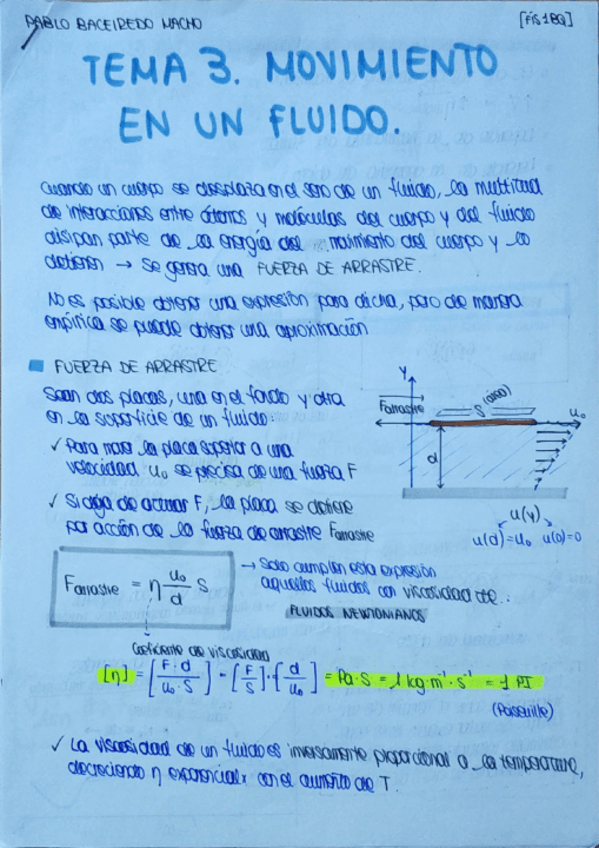 PABLO BACEIREDO MACHO
[FÍS 1BQ]
TEMA 3. MOVIMIENTO
EN UN FLUIDO.
Cuando un cuerpo se desplaza en el seno de un fluido, la multitud
de interacciones entre átomos y moléculas del cuerpo y del fluido
disipan parte de la energía del movimiento del cuerpo y lo
detienen → Se genera una FUERZA DE ARRASTRE.
No es posible obtener una expresión para dicha, pero de manera
empírica se puede obtener una aproximación
FUERZA DE ARRASTRE
Sean dos placas, una en el fondo y otra
en la superficie de un fluido:
✓ Para mover la placa superior a una
velocidad u₀ se precisa de una fuerza F
✓ Si deja de actuar F, la placa se detiene
por acción de la fuerza de arrastre Farrastre
Y
Farrastre
S (área)
u₀
d
u(y)
u(d)=u₀ u(0)=0
Farrastre = η u₀/d S
→ Solo cumplen esta expresión
aquellos fluidos con viscosidad cte.
FLUIDOS NEWTONIANOS
Coeficiente de viscosidad
[η] = [F·d / u₀·S] = [F/S]·[d/u₀] = Pa·s = 1 kg·m⁻¹·s⁻¹ = 1 Pl
(Poiseuille)
✓ La viscosidad de un fluido es inversamente proporcional a la temperatura,
decreciendo η exponencial× con el aumento de T.